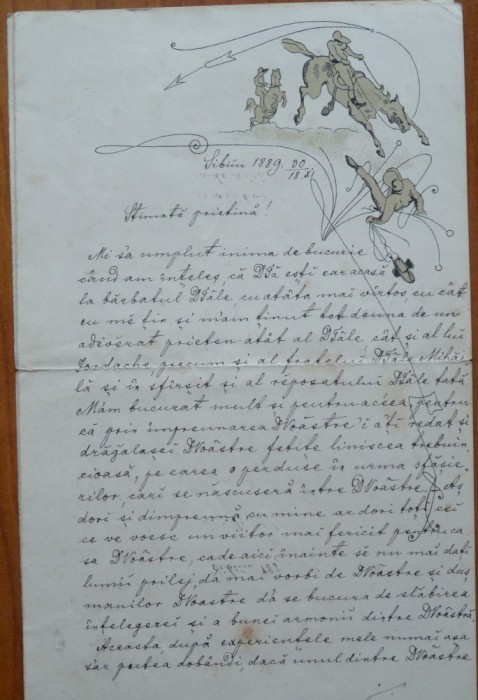 Sibiiu 1889. 30/18 XI
Stimată prietină!
Mi s'a umplut inima de bucurie
când am înțeles, că DTă ești ear acasă
la bărbatul DTăle, cu atâta mai virtos, cu cât
eu mĕ țin și m'am ținut tot deuna de un
adevĕrat prieten atât al DTăle cât și al lui
precum și al fratelui DTăle Mihăi-
lă și în sfirșit și al rĕposatului DTăle tată
M'am bucurat mult și pentru aceea, pentru
că prin împreunarea DVoăstre i ați redat și
drăgălașei DVoăstre fetițe liniscea trebuin-
cioasă, pe carea o perduse în urma
rilor, cari se născuseră între DVoăstre. Aș
dori și dimpreună cu mine ar dori toți cei
ce ve voesc un viitor mai fericit pentru ca-
sa DVoăstre, ca de aici înainte sĕ nu mai dați
lumii prilej, d'a mai vorbi de DVoăstre și duș-
manilor DVoastre d'a se bucura de slăbirea
înțelegerei și a bunei armonii dintre DVoăstră
Aceasta, după experiențele mele numai așa
s'ar putea dobândi, dacă unul dintre DVoăstre